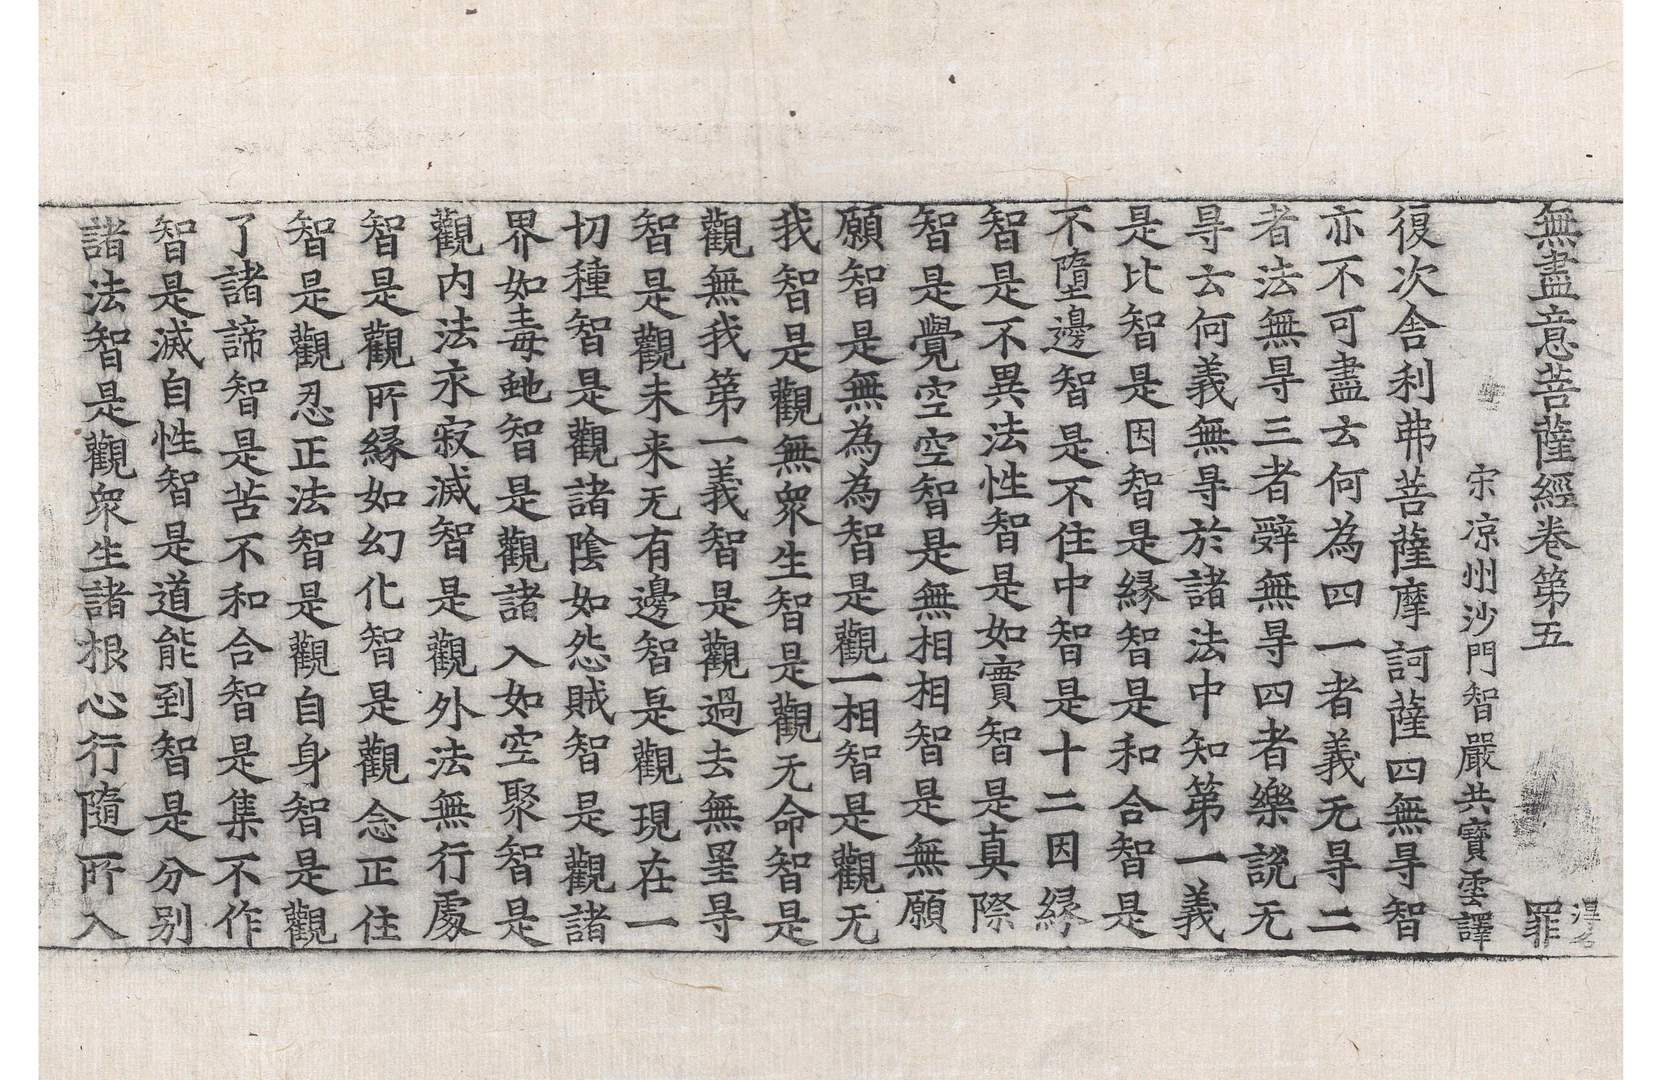 無盡意菩薩經卷第五 罪
宋凉州沙門智嚴共寶雲譯
復次舍利弗菩薩摩訶薩四無㝵智
亦不可盡云何為四一者義无㝵二
者法無㝵三者辭無㝵四者樂説无
㝵云何義無㝵於諸法中知第一義
是比智是因智是縁智是和合智是
不墮邊智是不住中智是十二因縁
智是不異法性智是如實智是真際
智是覺空空智是無相相智是無願
願智是無為為智是觀一相智是觀无
我智是觀無衆生智是觀无命智是
觀無我第一義智是觀過去無罣㝵
智是觀未来无有邊智是觀現在一
切種智是觀諸陰如怨賊智是觀諸
界如毒虵智是觀諸入如空聚智是
觀内法永寂滅智是觀外法無行處
智是觀所縁如幻化智是觀念正住
智是觀忍正法智是觀自身智是觀
了諸諦智是苦不和合智是集不作
智是滅自性智是道能到智是分别
諸法智是觀衆生諸根心行隨所入